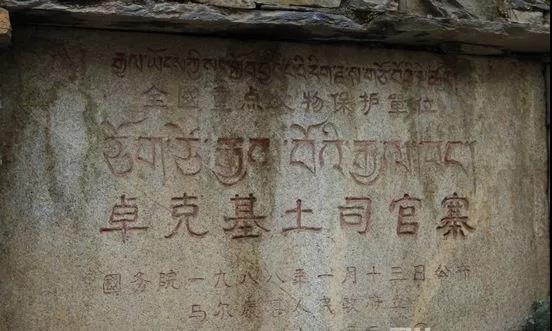 རྒྱལ་ཡོངས་ཀྱི་
全國重点文物保护單位
ཅོག་ཙེ་རྒྱལ་པོའི་རྒྱལ་ཁང་
卓克基土司官寨
國务院一九八八年一月十三日公布
马尔康县人民政府立